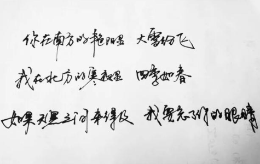 你在南方的艳阳里 大雪纷飞
我在北方的寒夜里 四季如春
如果天黑之前来得及 我要忘了你的眼睛